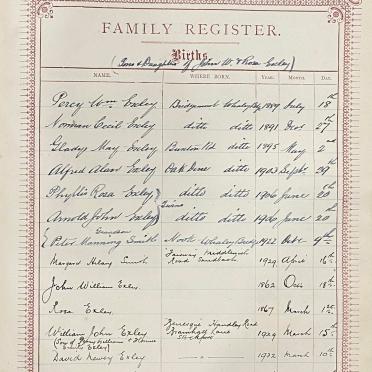 FAMILY REGISTER.
Births
(Sons & Daughters of John W. & Rosa Exley)
NAME. WHERE BORN. YEAR. MONTH. DAY.
Percy Wm Exley Bridgemont Whaley Bdg 1889 July 18th
Norman Cecil Exley ditto ditto 1891 27th
Glady May Exley Buxton Rd ditto 1895 May 2nd
Alfred Alan Exley Oak ditto 1903 Sept. 29th
Phyllis Rosa Exley ditto ditto 1906 June 20th
Twins
Arnold John Exley ditto ditto 1906 June 20th
Grandson
Peter Manning Smith Whaley Bridge 1922 Octr. 9th
Margaret Hilary Smith Middlewich Road Sandbach 1929 April 16th
John William Exley 1862 18th
Rosa Exley 1867 March
William John Exley Handley Road 1929 March 15th
(Son of Percy William & Florence Exley) Bramhall Lane Stockport
David Exley " 1932 March 10th